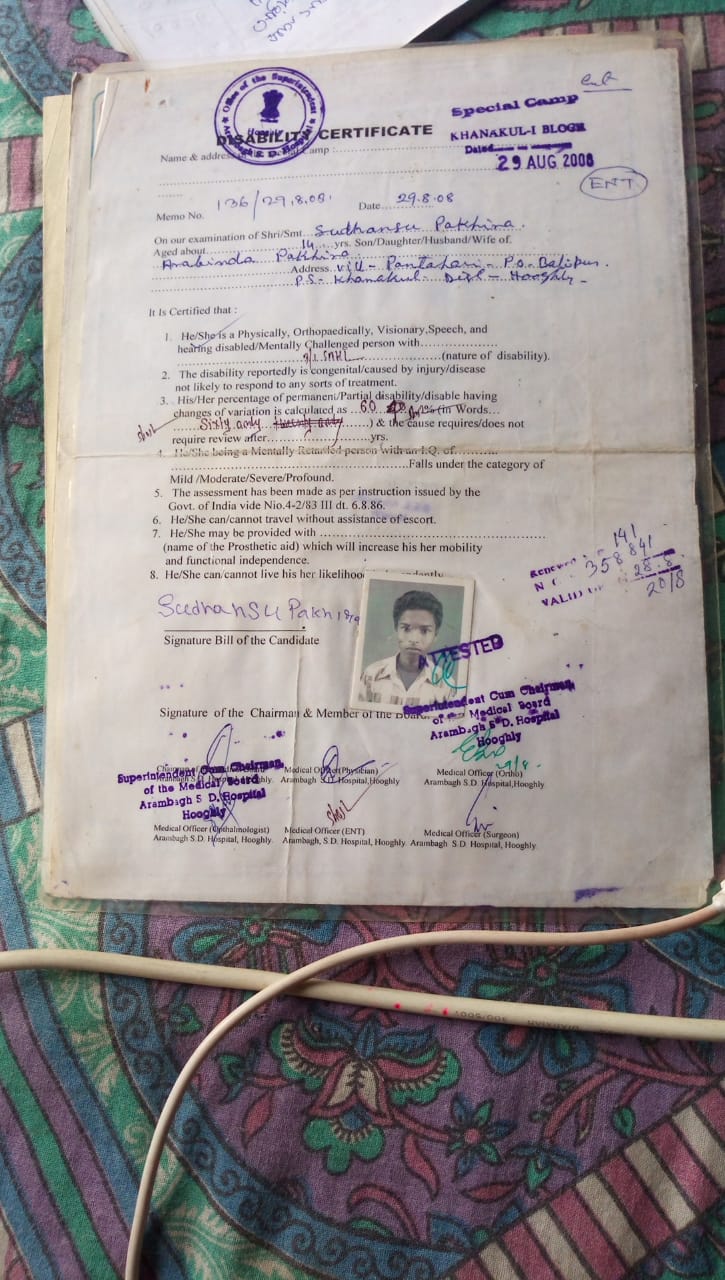 Office of the Superintendent
Arambagh S. D. Hooghly
DISABILITY CERTIFICATE
Special Camp
KHANAKUL-I BLOCK
Dated
29 AUG 2008
ENT
Name & address Camp :
Memo No. 136/29.8.08. Date 29.8.08
On our examination of Shri/Smt. Sudhansu Pakhira.
Aged about 14 yrs. Son/Daughter/Husband/Wife of.
Arabinda Pakhira
Address Vill - P.O. Balipur.
P.S. Khanakul Dist - Hooghly -
It Is Certified that :
1. He/She is a Physically, Orthopaedically, Visionary,Speech, and
hearing disabled/Mentally Challenged person with
B/L SNHL (nature of disability).
2. The disability reportedly is congenital/caused by injury/disease
not likely to respond to any sorts of treatment.
3. His/Her percentage of permanent/Partial disability/disable having
changes of variation is calculated as 60 % (in Words...
Sixty only ) & the cause requires/does not
require review after yrs.
4. He/She being a Mentally Retarded person with an I.Q. of
Falls under the category of
Mild /Moderate/Severe/Profound.
5. The assessment has been made as per instruction issued by the
Govt. of India vide Nio.4-2/83 III dt. 6.8.86.
6. He/She can/cannot travel without assistance of escort.
7. He/She may be provided with
(name of the Prosthetic aid) which will increase his her mobility
and functional independence.
8. He/She can/cannot live his her likelihood
Renewed 141
N 358841
VALID 28.8
2018
Sudhansu Pakhira
Signature Bill of the Candidate
ATTESTED
Superintendent Cum Chairman
of the Medical Board
Arambagh S D. Hospital
Hooghly
Signature of the Chairman & Member of the Board
Superintendent Cum Chairman
of the Medical Board
Arambagh S D. Hospital
Hooghly
Medical Officer (Physician)
Arambagh S.D. Hospital,Hooghly
Medical Officer (Ortho)
Arambagh S.D. Hospital,Hooghly
Medical Officer (Opthalmologist)
Arambagh S.D. Hospital, Hooghly.
Medical Officer (ENT)
Arambagh, S.D. Hospital, Hooghly
Medical Officer (Surgeon)
Arambagh S.D. Hospital, Hooghly